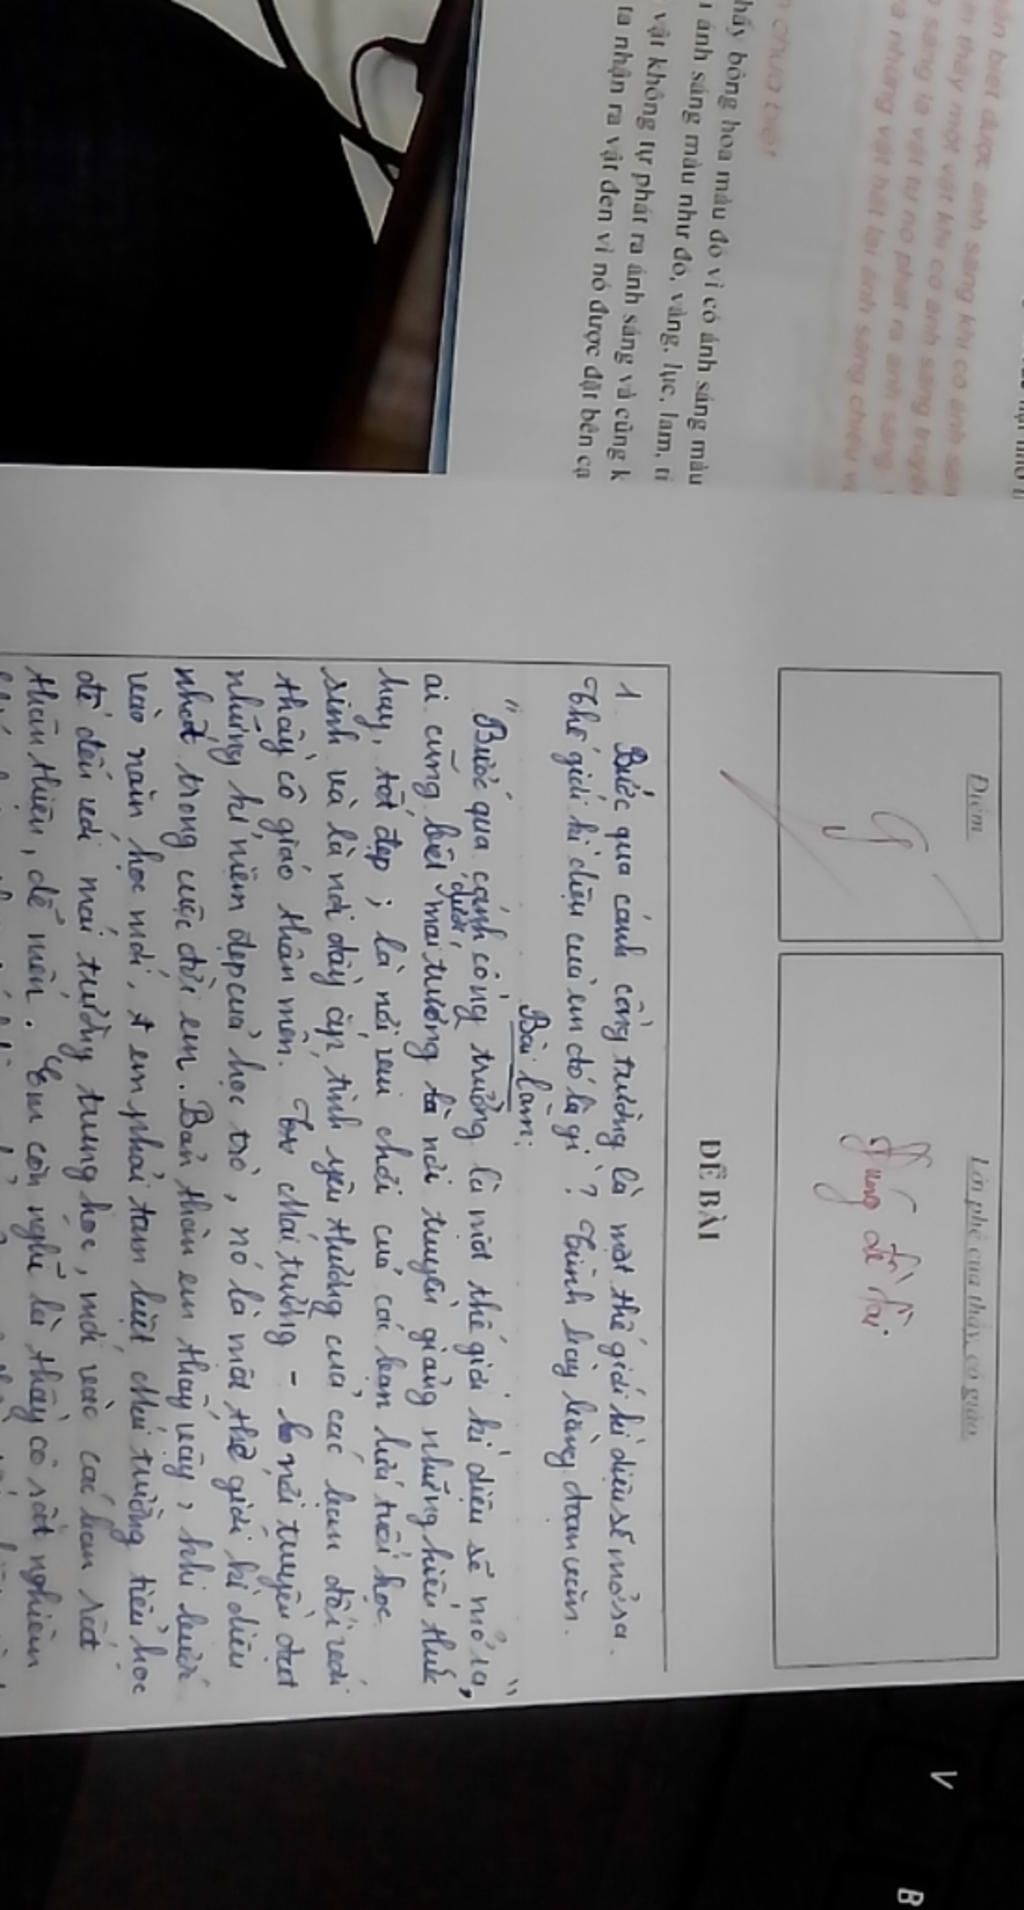 Điểm
Lời phê của thầy, cô giáo
9
Đúng đề bài
ĐỀ BÀI
1. Bước qua cánh cổng trường là một thế giới kì diệu sẽ mở ra.
Thế giới kì diệu của em đó là gì? Trình bày bằng đoạn văn.
Bài làm:
"Bước qua cánh cổng trường là một thế giới kì diệu sẽ mở ra,"
ai cũng biết dưới mái trường là nơi truyền giảng những kiến thức
hay, tốt đẹp; là nơi vui chơi của các bạn lứa tuổi học
sinh và là nơi đầy ắp tình yêu thương của các bạn đối với
thầy cô giáo thân mến. Mái trường - là nơi truyền đạt
những kỉ niệm đẹp của học trò, nó là một thế giới kì diệu
nhất trong cuộc đời em. Bản thân em thấy vậy, khi bước
vào năm học mới, em phải tạm biệt Mái trường tiểu học
để đến với mái trường trung học, mới vào các bạn rất
thân thiện, dễ mến. Em còn nghĩ là thầy cô rất nghiêm
hấy bông hoa màu đỏ vì có ánh sáng màu
ánh sáng màu như đỏ, vàng, lục, lam, tí
vật không tự phát ra ánh sáng và cũng k
ta nhận ra vật đen vì nó được đặt bên cạ
chưa biệt
biết được ánh sáng khi có ánh sán
thấy một vật khi có ánh sáng truyền
sáng là vật tự nó phát ra ánh sáng.
những vật hắt lại ánh sáng chiếu và
V
B